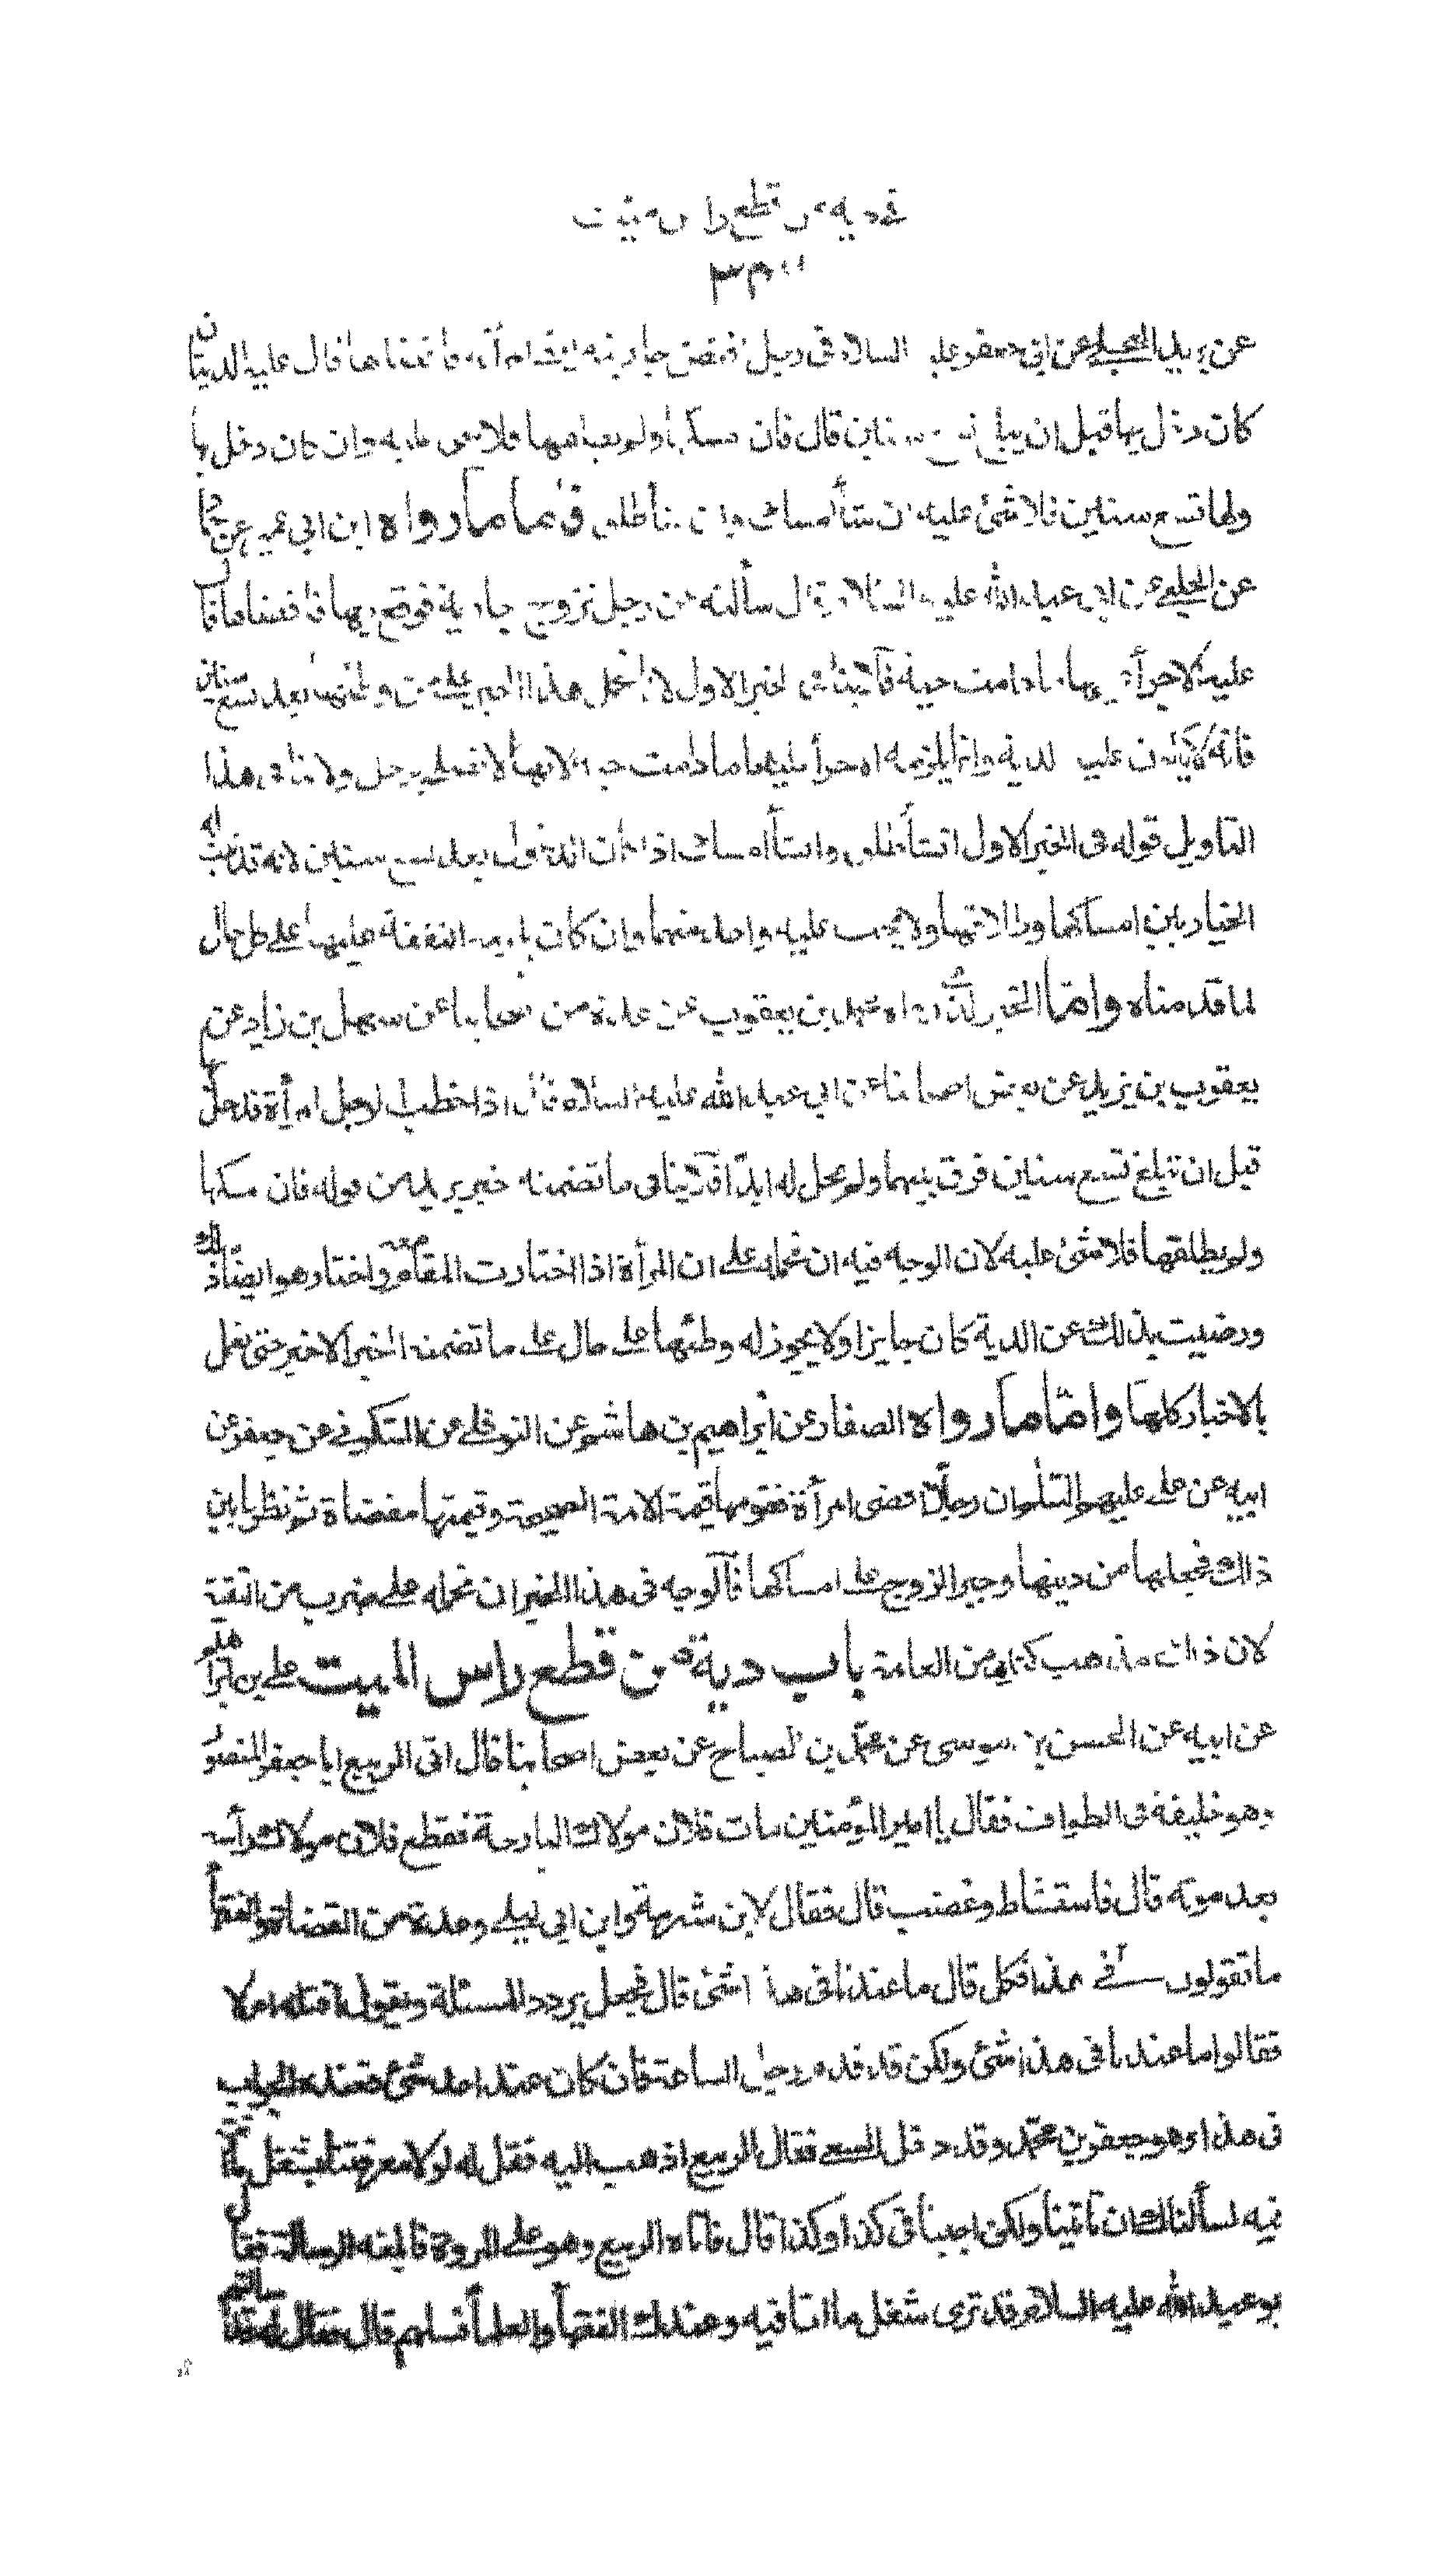 في دية من قطع راس الميت
عن بريد العجلي عن ابي جعفر عليه السلام في رجل افتض جارية يعني امرأته فافضاها قال عليه الدية ان
كان دخل بها قبل ان يبلغ تسع سنين قال فان امسكها ولم يطلقها فلا شئ عليه وان كان دخل بها
ولها تسع سنين فلا شئ عليه ان شاء امسك وان شاء طلق فاما ما رواه ابن ابي عمير عن حماد
عن الحلبي عن ابي عبد الله عليه السلام قال سألته عن رجل تزوج جارية فوقع بها فافضاها قال
عليه الاجراء عليها ما دامت حية فلا ينافي الخبر الاول لانا نحمل هذا الخبر على من وطئها بعد تسع سنين
فانه لا يكون عليه الدية وانما يلزمه الاجراء عليها ما دامت حية لانها لا تصلح لرجل ولا ينافي هذا
التاويل قوله في الخبر الاول ان شاء طلق وان شاء امسك اذا كان الدخول بعد تسع سنين لانه قد ثبت له
الخيار بين امساكها وطلاقها ولا يجب عليه واحد منهما وان كان يلزمه النفقة عليها على كل حال
لما قدمناه واما الخبر الذي رواه محمد بن يعقوب عن عدة من اصحابنا عن سهل بن زياد عن
يعقوب بن يزيد عن بعض اصحابنا عن ابي عبد الله عليه السلام قال اذا خطب الرجل امرأة فدخل بها
قبل ان تبلغ تسع سنين فرق بينهما ولم يحل له ابدا فلا ينافي ما تضمنه خبر بريد من قوله فان امسكها
ولم يطلقها فلا شئ عليه لان الوجه فيه ان نحمله على ان المرأة اذا اختارت المقام معه واختار هو ايضا ذلك
ورضيت بذلك عن الدية كان جايزا ولا يجوز له وطئها على حال على ما تضمنه الخبر الاخير حتى نعمل
بالاخبار كلها واما ما رواه الصفار عن ابراهيم بن هاشم عن النوفلي عن السكوني عن جعفر عن
ابيه عن علي عليهم السلام ان رجلا افضى امرأة فقومها قيمة الامة الصحيحة وقيمتها مفضاة ثم نظر ما بين
ذلك فجعلها من ديتها وجبر الزوج على امساكها فالوجه في هذا الخبر ان نحمله على ضرب من التقية
لان ذلك مذهب كثير من العامة باب دية من قطع راس الميت علي بن ابراهيم
عن ابيه عن الحسن بن موسى عن محمد بن الصباح عن بعض اصحابنا قال اتى الربيع ابا جعفر المنصور
وهو خليفة في الطواف فقال يا امير المؤمنين مات فلان مولاك البارحة فقطع فلان مولاك رأسه
بعد موته قال فاستشاط وغضب قال فقال لابن شبرمة وابن ابي ليلى وعدة من القضاة والفقهاء
ما تقولون في هذا فكل قال ما عندنا في هذا شئ قال فجعل يردد المسئلة ويقول اقتله ام لا
فقالوا ما عندنا في هذا شئ ولكن قد قدم رجل الساعة فان كان عند احد شئ فعنده الجواب
في هذا وهو جعفر بن محمد وقد دخل المسعى فقال للربيع اذهب اليه فقل له لولا معرفتنا بشغل ما انت
فيه لسألناك ان تأتينا ولكن اجبنا في كذا وكذا قال فاتاه الربيع وهو على المروة فابلغه الرسالة فقال
ابو عبد الله عليه السلام قد ترى شغل ما انا فيه وعندك الفقهاء والعلماء فسلهم قال فقال له قد سألهم